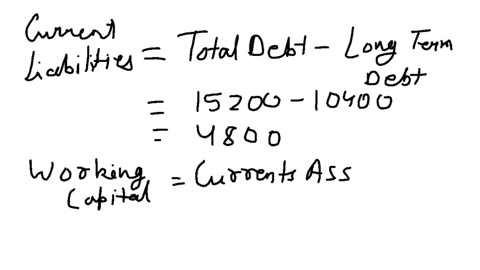 Current Liabilities = Total Debt - Long Term Debt
= 15200 - 10400
= 4800
Working Capital = Currents Ass